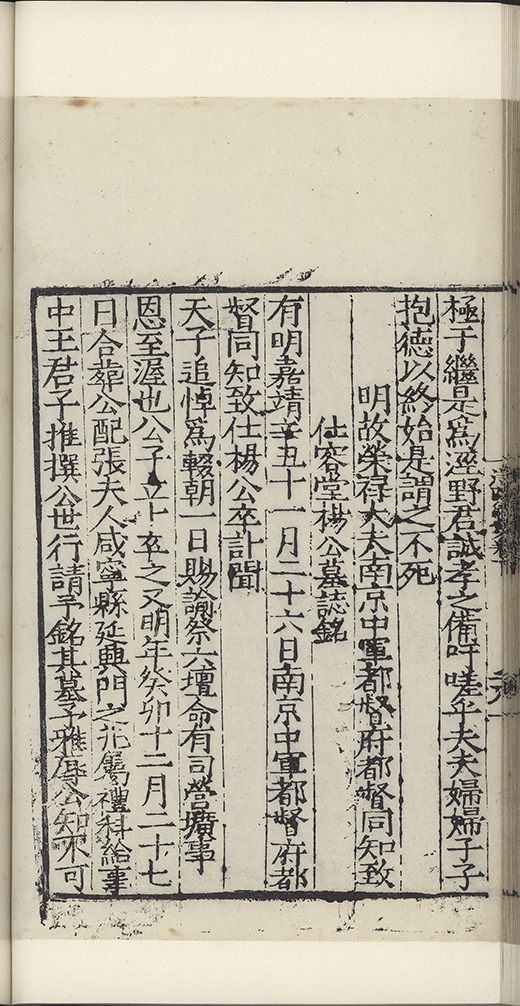 極于繼是爲涇野君誠孝之備吁嗟乎夫夫婦婦子子
抱德以終始是謂之不死
明故榮祿大夫南京中軍都督府都督同知致
仕容堂楊公墓誌銘
有明嘉靖辛丑十一月二十六日南京中軍都督府都
督同知致仕楊公卒訃聞
天子追悼爲輟朝一日賜諭祭六壇命有司營壙事
恩至渥也公子立卜卒之又明年癸卯十二月二十七
日合葬公配張夫人咸寧縣延興門之北屬禮科給事
中王君子推撰公世行請予銘其墓予雅辱公知不可